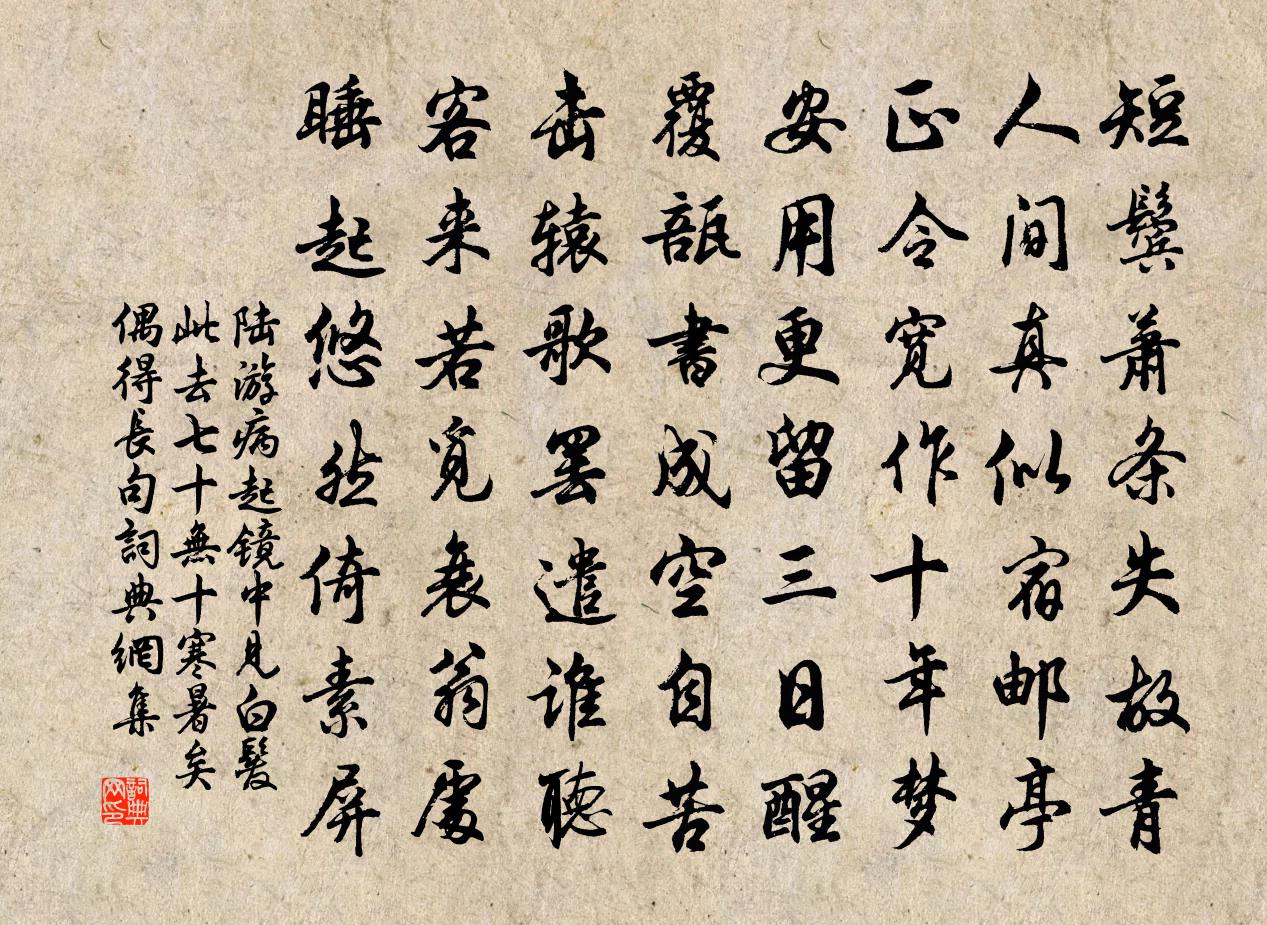 短鬓萧条失故青
人间真似宿邮亭
正令宽作十年梦
安用更留三日醒
覆瓿書成空自苦
击辕歌罢遣谁聽
客来若觅衰翁處
睡起悠然倚素屏
陆游病起镜中見白髮
此去七十無十寒暑矣
偶得長句詞典網集
詞典
网印